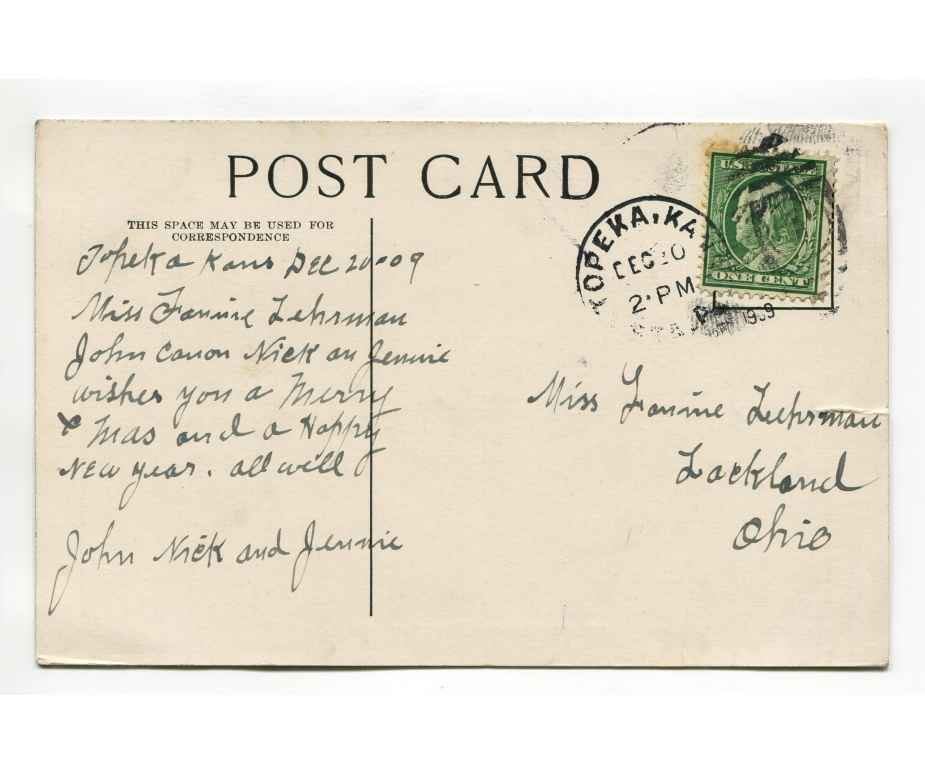 POST CARD
THIS SPACE MAY BE USED FOR
CORRESPONDENCE
Topeka Kans Dec 20-09
Miss Fannie Lehrman
John Canon Nick an Jennie
wishes you a Merry
X mas and a Happy
New year. all well
John Nick and Jennie
TOPEKA, KA
DEC 20
2 - PM
1909
ONE CENT
Miss Fannie Luhrman
Lockland
Ohio